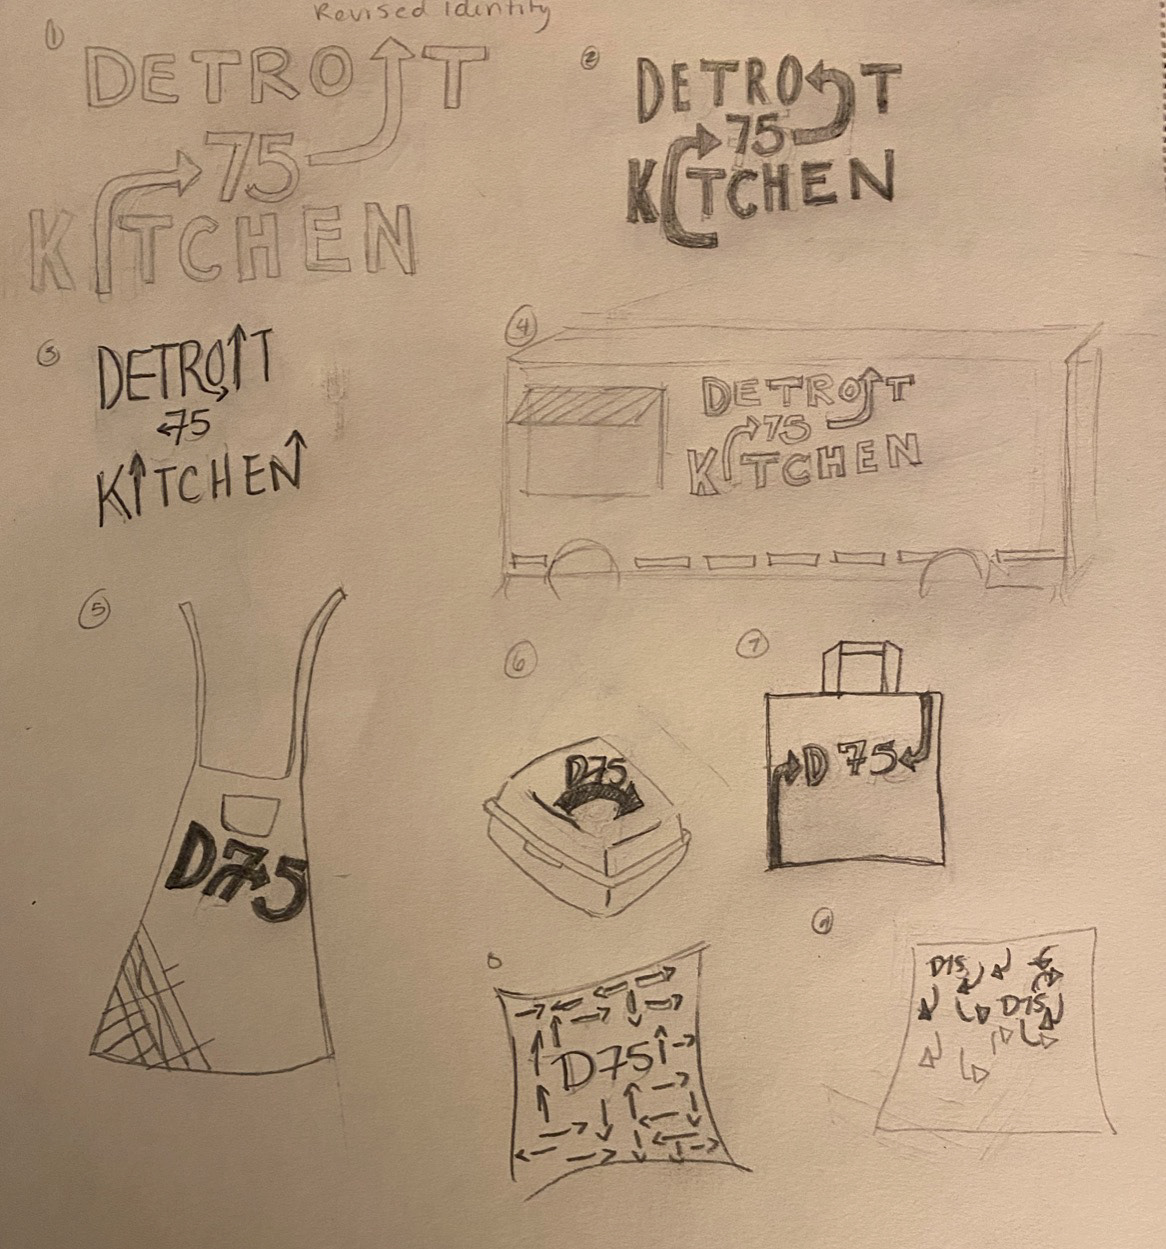 Revised Identity
1
DETROIT
75
KITCHEN
2
DETROIT
75
KITCHEN
3
DETROIT
75
KITCHEN
4
DETROIT
75
KITCHEN
5
D75
6
D75
7
D 75
8
D75
9
D75
D75